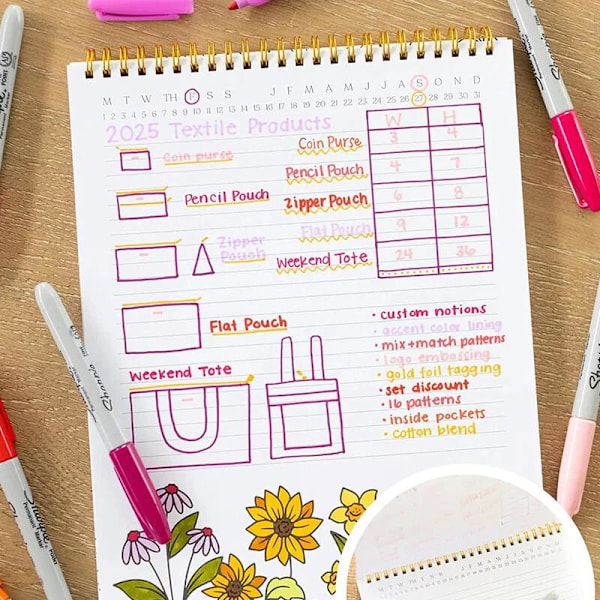 M T W TH F S S J F M A M J J A S O N D
1 2 3 4 5 6 7 8 9 10 11 12 13 14 15 16 17 18 19 20 21 22 23 24 25 26 27 28 29 30 31
2025 Textile Products
W H
Coin purse
Coin Purse 3 4
Pencil Pouch 4 7
Pencil Pouch
Zipper Pouch 6 8
Flat Pouch 9 12
Zipper
Pouch
Weekend Tote 24 36
Flat Pouch
Weekend Tote
• custom notions
• accent color lining
• mix+match patterns
• logo embossing
• gold foil tagging
• set discount
• 16 patterns
• inside pockets
• cotton blend
Sharpie
Sharpie
Sharpie